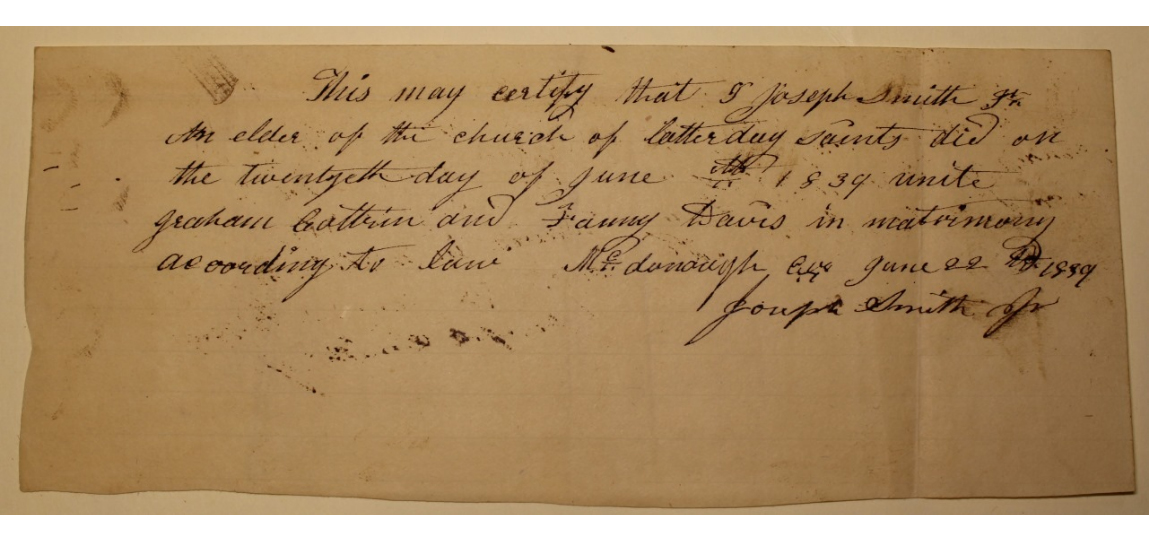 This may certify that I Joseph Smith Jr.
An elder of the church of latterday saints did on
the twentyeth day of June 1839 unite
graham Coltrin and Fanny Davis in matrimony
according to law Mc donough Co June 22 1839
Joseph Smith Jr